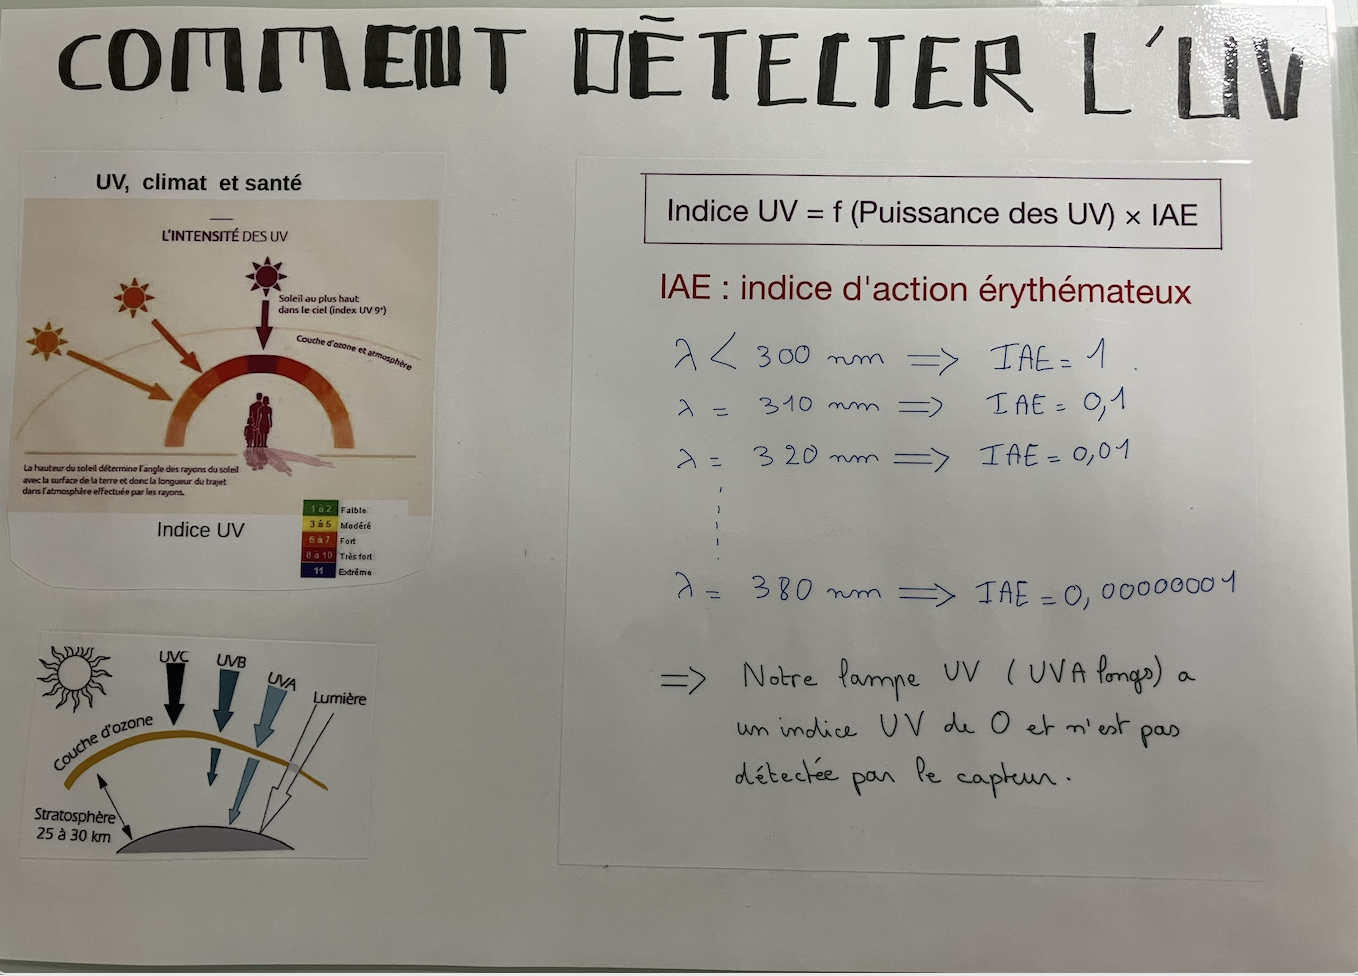 COMMENT DÉTECTER L'UV
UV, climat et santé
L'INTENSITÉ DES UV
Soleil au plus haut
dans le ciel (index UV 9+)
Couche d'ozone et atmosphère
La hauteur du soleil détermine l'angle des rayons du soleil
avec la surface de la terre et donc la longueur du trajet
dans l'atmosphère effectuée par les rayons.
Indice UV
1 à 2 Faible
3 à 5 Modéré
6 à 7 Fort
8 à 10 Très fort
11 Extrême
UVC
UVB
UVA
Lumière
Couche d'ozone
Stratosphère
25 à 30 km
Indice UV = f (Puissance des UV) × IAE
IAE : indice d'action érythémateux
λ < 300 nm ⇒ IAE = 1.
λ = 310 nm ⇒ IAE = 0,1
λ = 320 nm ⇒ IAE = 0,01
λ = 380 nm ⇒ IAE = 0,00000001
⇒ Notre lampe UV (UVA longs) a
un indice UV de 0 et n'est pas
détectée par le capteur.